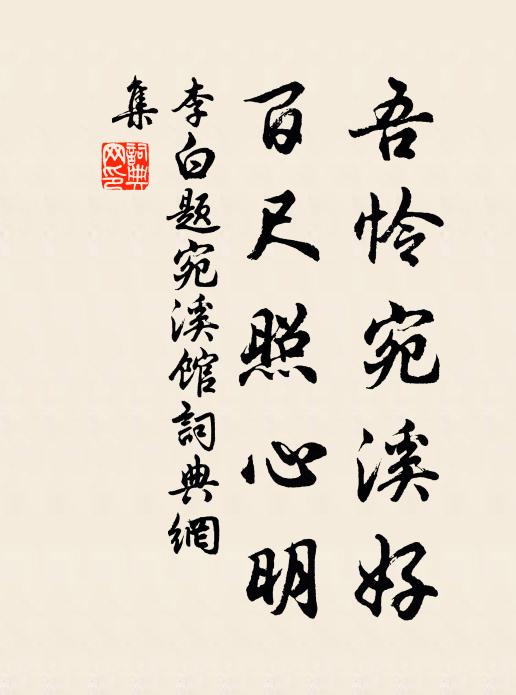 吾怜宛溪好
百尺照心明
李白題宛溪館詞典網
集
詞典網印